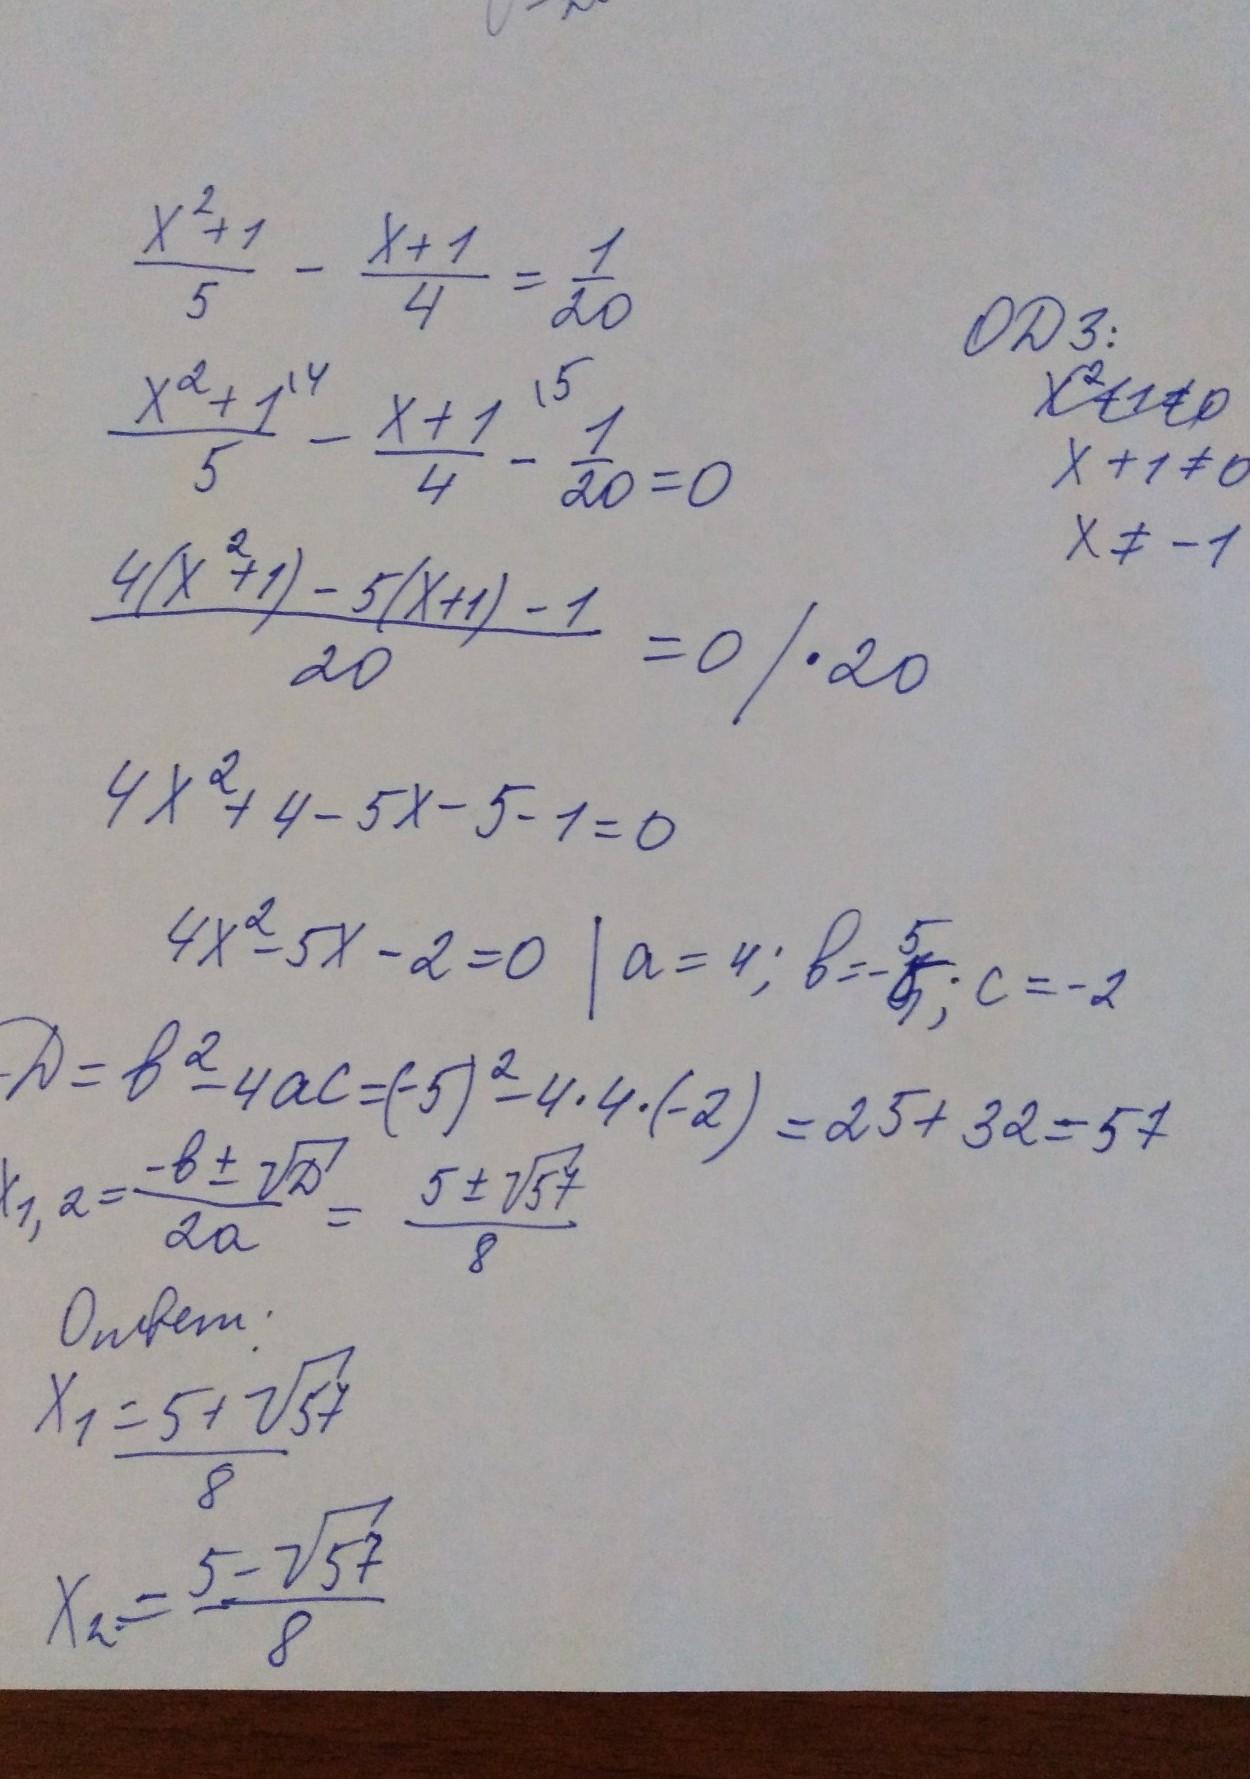 (x²+1)/5 - (x+1)/4 = 1/20
(x²+1)\4/5 - (x+1)\5/4 - 1/20 = 0
ОДЗ:
x+1≠0
x≠-1
(4(x²+1)-5(x+1)-1)/20 = 0 /·20
4x²+4-5x-5-1=0
4x²-5x-2=0 | a=4; b=-5; c=-2
D=b²-4ac=(-5)²-4·4·(-2)=25+32=57
x1,2=(-b±√D)/2a=(5±√57)/8
Ответ:
x1=(5+√57)/8
x2=(5-√57)/8